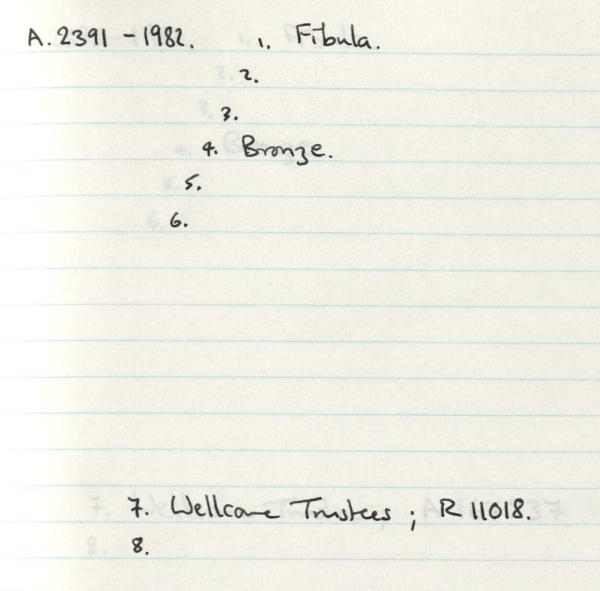 A.2391-1982. 1. Fibula.
2.
3.
4. Bronze.
5.
6.
7. Wellcome Trustees ; R 11018.
8.